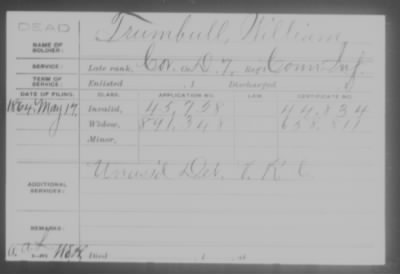 DEAD
Trumbull, William
NAME OF SOLDIER:
SERVICE: Late rank, Cor. Co. D. 7, Reg't Conn Inf.
TERM OF SERVICE: Enlisted , 1 Discharged , 1
DATE OF FILING. CLASS. APPLICATION NO. LAW. CERTIFICATE NO.
1864 May 17, Invalid, 45,758 44,834
Widow, 841,348
Minor,
Unas'd Det. V. R. C.
ADDITIONAL SERVICES:
REMARKS:
Died , 1 , at